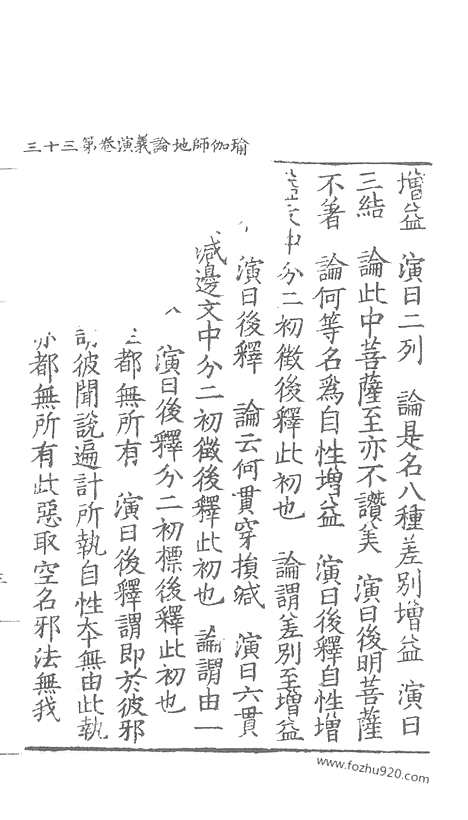 瑜伽師地論義演卷第三十三
增益　演曰二列　論是名八種差別增益　演曰
三結　論此中菩薩至亦不讚美　演曰後明菩薩
不著　論何等名爲自性增益　演曰後釋自性增
益文中分二初徵後釋此初也　論謂差別至增益
演曰後釋　論云何貫穿損減　演曰六貫
減邊文中分二初徵後釋此初也　論謂由一
演曰後釋分二初標後釋此初也
都無所有　演曰後釋謂即於彼邪
彼聞說遍計所執自性本無由此執
都無所有此惡取空名邪法無我
三
www.fozhu920.com